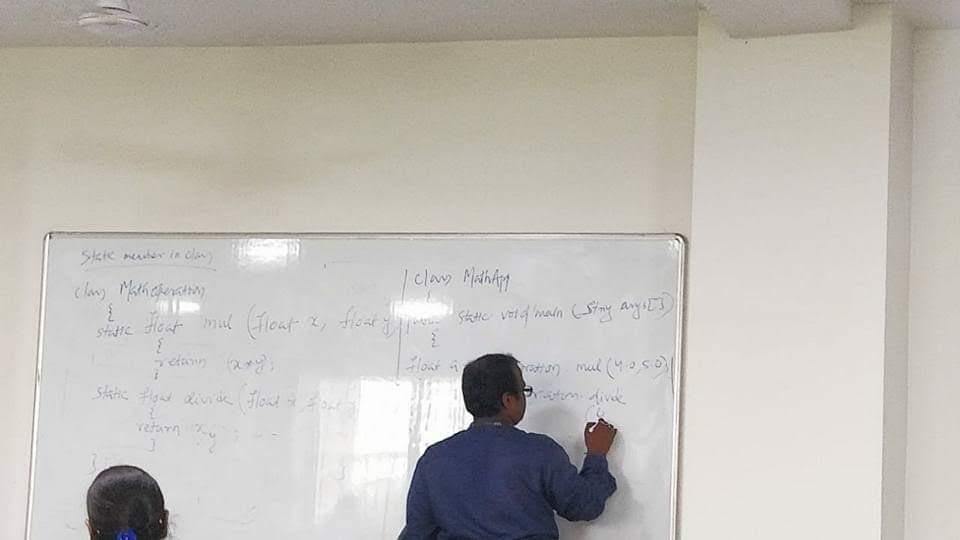 Static member in class
class Mathoperation
{
static float mul (float x, float y
{
return (x*y);
}
static float divide (float x, float
{
return x/y ;
}
}
class MathApp
{
static void main (String args[])
{
float mul (4.0, 5.0)
divide
(